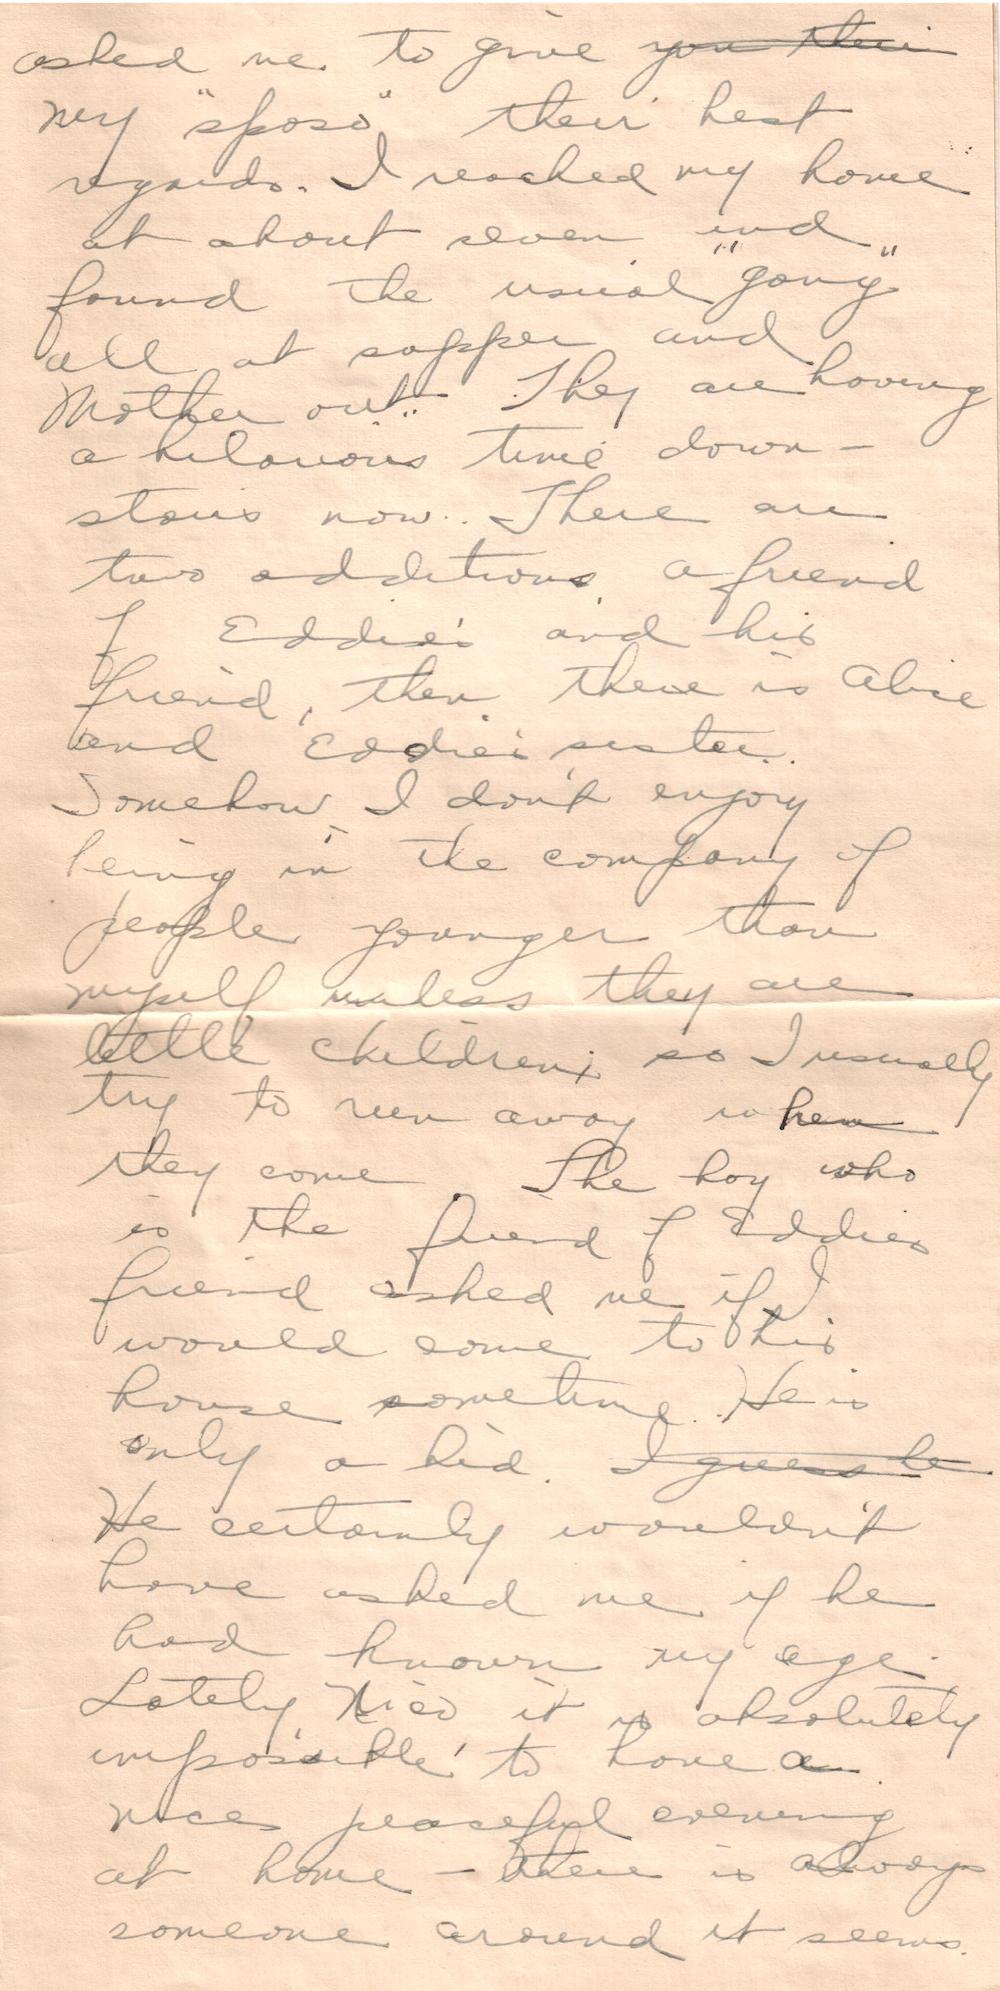 asked me to give ~~you their~~
my "sposo" their best
regards. I reached my home
at about seven and
found the usual "gang"
all at supper and
Mother out. They are having
a hilarious time down-
stairs now. There are
two additions, a friend
of Eddie's and his
friend, then there is Alice
and Eddie's sister.
Somehow, I don't enjoy
being in the company of
people younger than
myself unless they are
little children; so I usually
try to run away when
they come. The boy who
is the friend of Eddies
friend asked me if I
would come to his
house sometime. He is
only a kid. ~~I guess he~~
He certainly wouldn't
have asked me if he
had known my age.
Lately Nico it is absolutely
impossible to have a
nice peaceful evening
at home - there is always
someone around it seems.